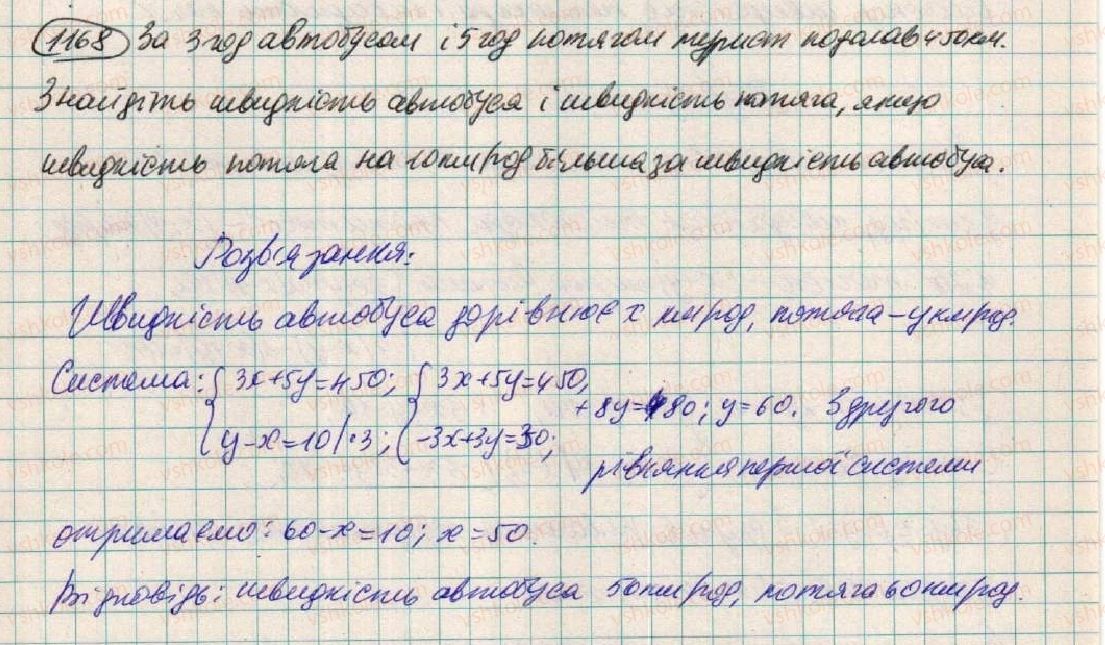 1168 За 3 год автобусом і 5 год потягом турист подолав 450 км.
Знайдіть швидкість автобуса і швидкість потяга, якщо
швидкість потяга на 10 км/год більша за швидкість автобуса.
Розв'язання:
Швидкість автобуса дорівнює x км/год, потяга – y км/год.
Система: { 3x+5y=450; { 3x+5y=450,
y-x=10 |·3; -3x+3y=30; + 8y=480; y=60. З другого
рівняння першої системи
отримаємо: 60-x=10; x=50.
Відповідь: швидкість автобуса 50 км/год, потяга 60 км/год.